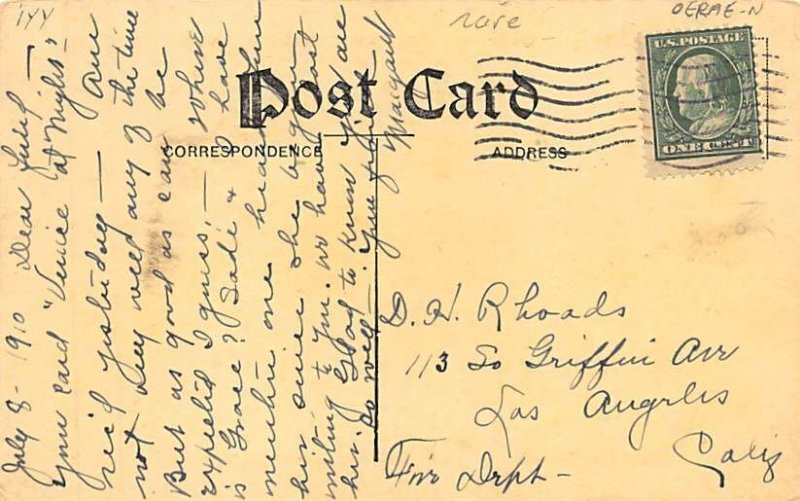 144
rare
OERAE-N
U.S. POSTAGE
ONE CENT
Post Card
CORRESPONDENCE
ADDRESS
July 8 - 1910 Dear
Your card "Venice at Night" -
rec'd yesterday — Am
not very well any of the time
But as good as can be
expected I guess, — Where
is Grace? Sadie & I have
one
his since she begun
writing to you. We have lost
her. Glad to know you are
so well — Your friend
Margaret
D. H. Rhoads
113 So Griffin Ave
Los Angeles
Calif
Fire Dept -